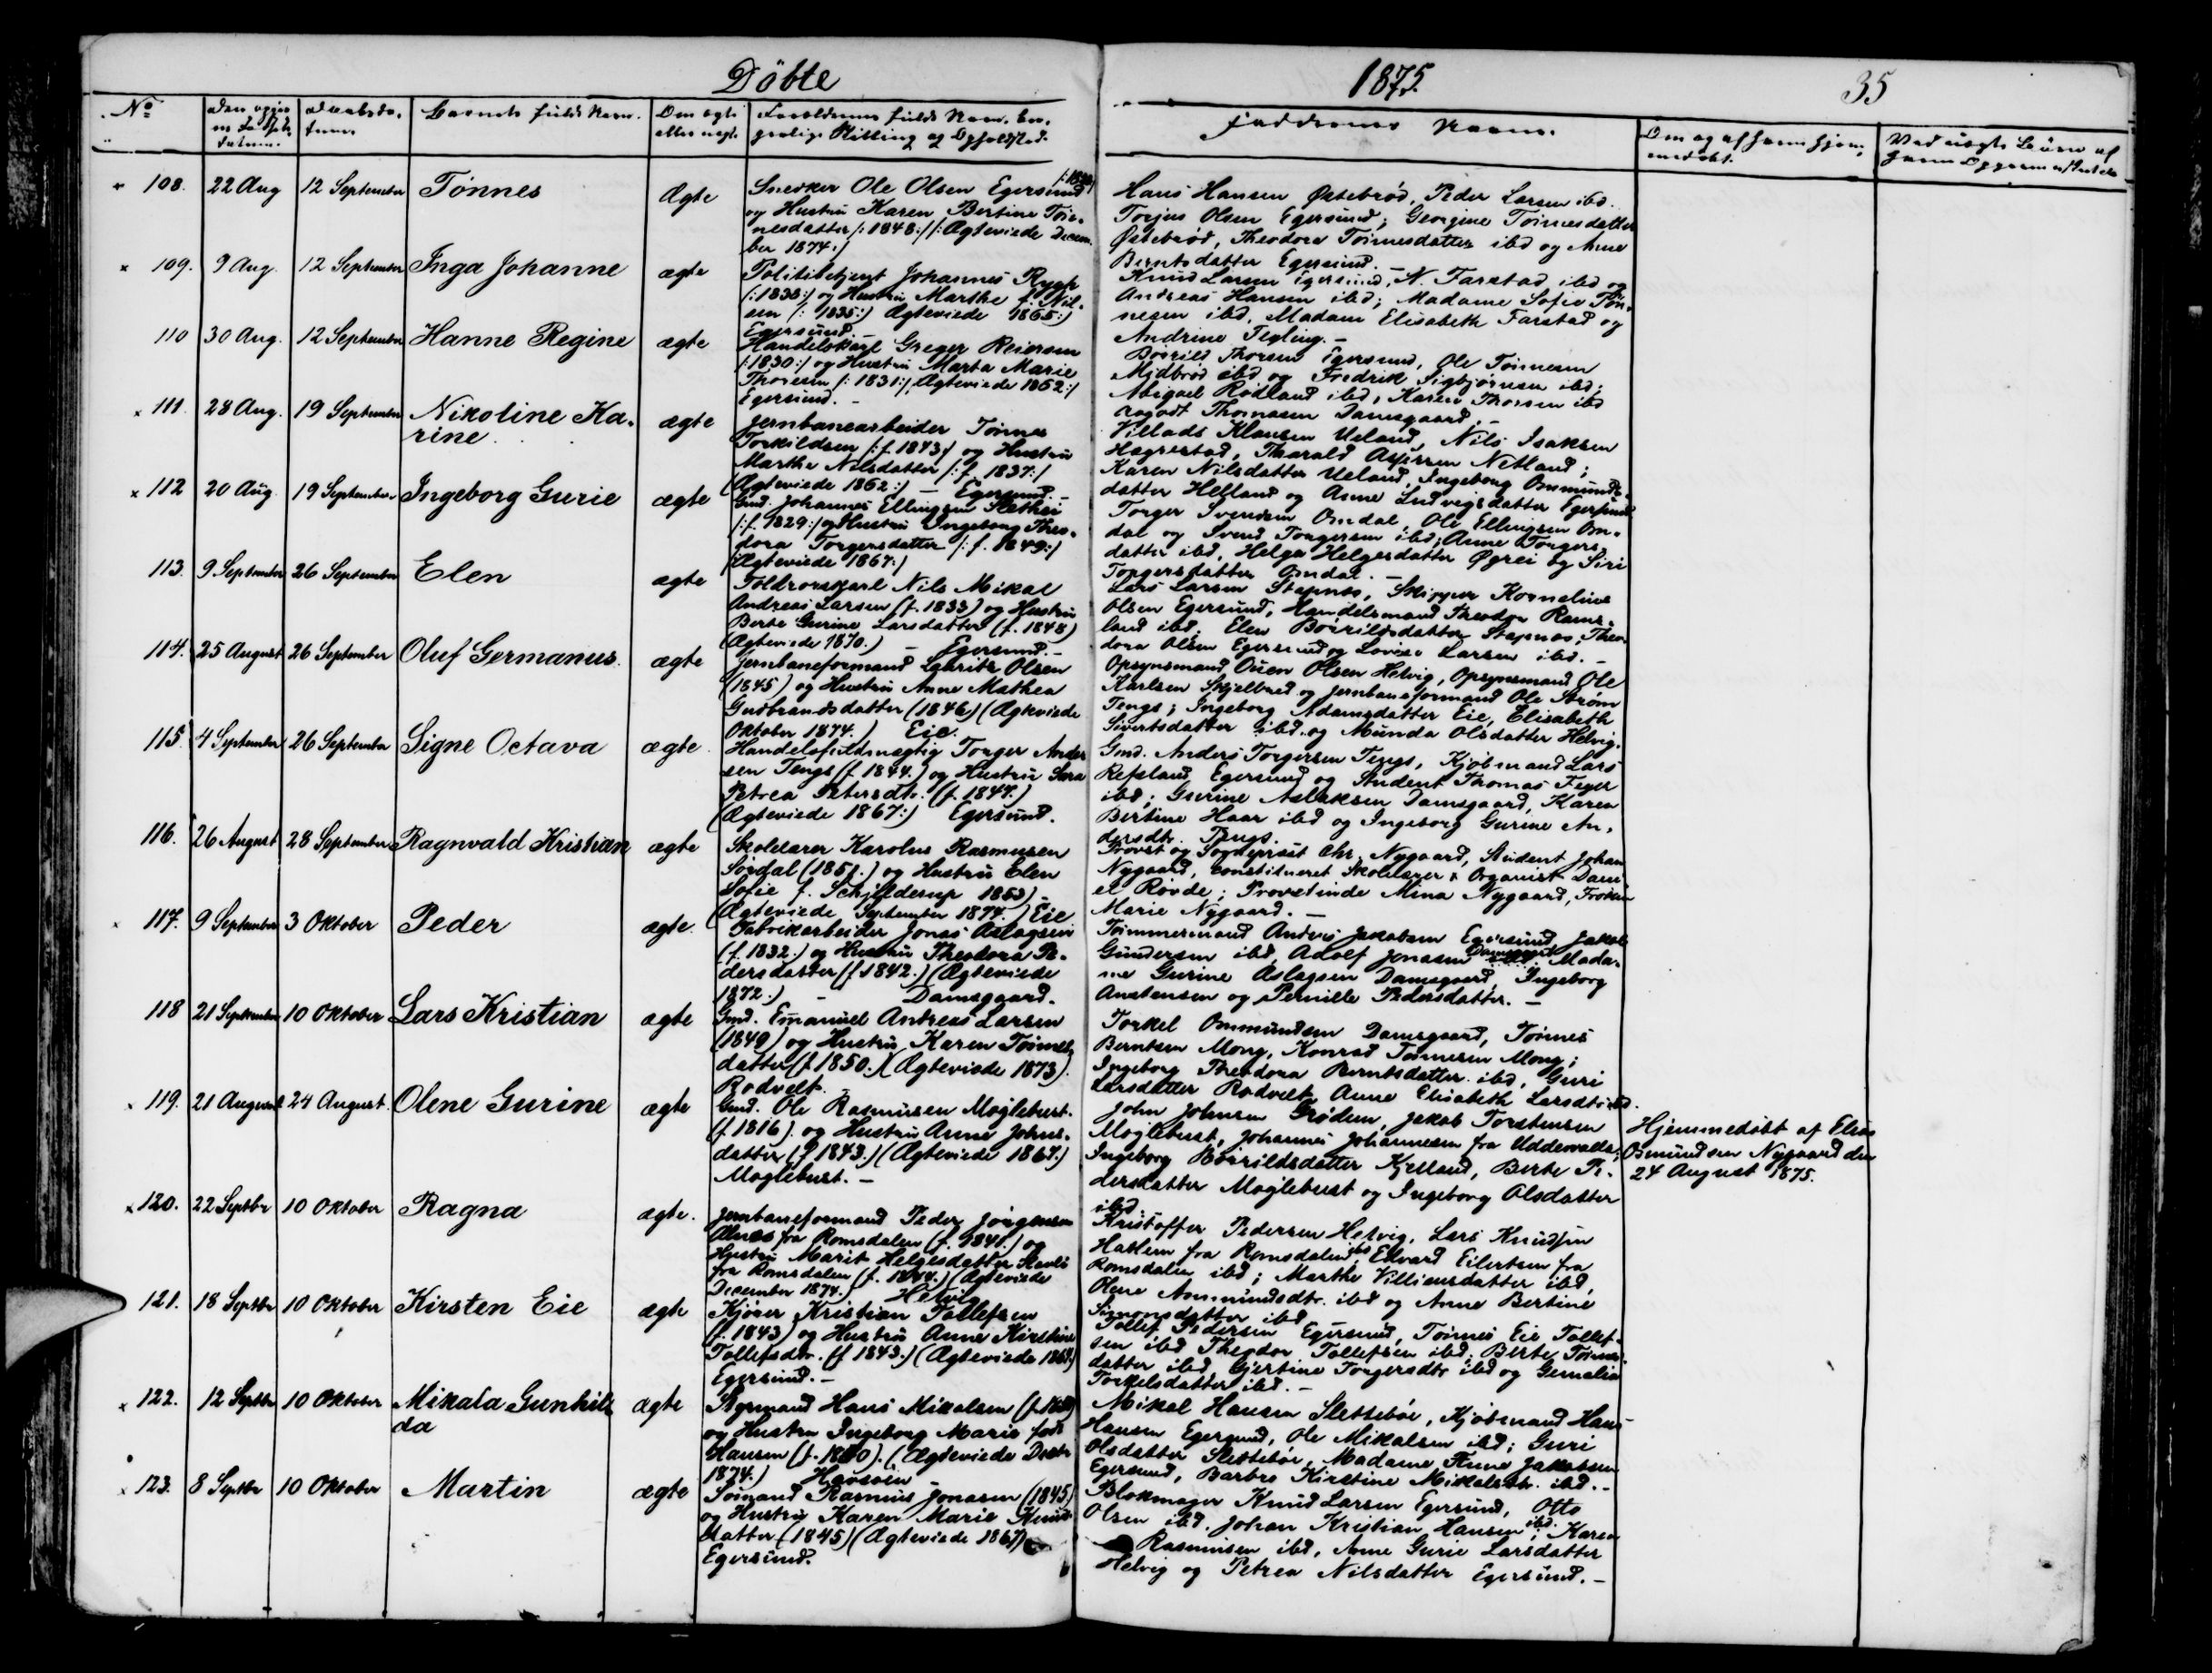 Döbte
1875.
35
No
Barnets fulde Navn.
Faddernes Navne.
108. 22 Aug 12 September Tönnes Ægte
Snedker Ole Olsen Egersund
og Hustru Karen Bertine Tön-
nesdatter /:1848:/ /:Ægteviede Decem-
ber 1874:/
Hans Hansen Østebrød, Peder Larsen ibd.
Torjus Olsen Egersund; Georgine Tönnesdatter
Østebrød, Theodora Tönnesdatter ibd og Anne
Berntsdatter Egersund.
109. 9 Aug. 12 September Inga Johanne ægte
Politibetjent Johannes Rygh
og Hustru Marthe f. Nil-
sen (:1835:) Ægteviede 1865:)
Egersund.
Knud Larsen Egersund, N. Farstad ibd og
Andreas Hansen ibd; Madame Sofie Tön-
nesen ibd, Madam Elisabeth Farstad og
Andrine Tegling. –
110 30 Aug. 12 September Hanne Regine ægte
Handelskarl Greger Reiersen
/:1830:/ og Hustru Marta Marie
Thorsen /:1831:/ Ægteviede 1862:/
Egersund. –
Thorsen Egersund, Ole Tönnesen
Midbrød ibd og Fredrik Sigbjörnsen ibd;
Abigael Rödland ibd, Karen Thorsen ibd
Thomasen Damsgaard. –
111. 28 Aug. 19 September Nikoline Ka- ægte
rine.
Jernbanearbeider Tönnes
Torkildsen /:f. 1843:/ og Hustru
Marthe Nilsdatter /:f. 1837:/
(Ægteviede 1862:) – Egersund. –
Villads Klausen Ueland, Nils Isaksen
Hægrestad, Tharald Netland;
Karen Nilsdatter Ueland, Ingeborg Ommunds-
datter Helland og Anne Ludvigsdatter Egersund
112 20 Aug. 19 September Ingeborg Gurie ægte
Gmd. Johannes Ellingsen
/:f. 1829:/ og Hustru Ingeborg Theo-
dora Torgersdatter /:f. 1849:/
(Ægteviede 1867:)
Torger Svendsen Omdal, Ole Ellingsen Om-
dal og Svend Torgersen ibd; Anne Torgers-
datter ibd, Helga Helgesdatter Øgrei og Siri
Torgersdatter Omdal. –
113. 9 September 26 September Elen ægte
Toldroerskarl Nils Mikal
Andreas Larsen (f. 1833) og Hustru
Berte Gurine Larsdatter (f. 1848)
(Ægteviede 1870.) – Egersund. –
Lars Larsen Stapnes, Skipper Kornelius
Olsen Egersund, Handelsmand Theodor Rams-
land ibd; Elen Börildsdatter Stapnes, Theo-
dora Olsen Egersund og Lovise Larsen ibd. –
114. 25 August 26 September Oluf Germanus. ægte
Jernbaneformand Lauritz Olsen
(1845) og Hustru Anne Mathea
Gudbrandsdatter (1846) (Ægteviede
Oktober 1874.) Eie.
Opsynsmand Ouen Olsen Helvig, Opsynsmand Ole
Karlsen Skjelbred og Jernbaneformand Ole Ström
Tengs; Ingeborg Adamsdatter Eie, Elisabeth
Sivertsdatter ibd. og Munda Olsdatter Helvig.
115. 4 September 26 September Signe Octava ægte
Handelsfuldmægtig Torger Ander
sen Tengs (f. 1844.) og Hustru Sara
Petrea Petersdtr. (f. 1847.)
(Ægteviede 1867:) Egersund.
Gmd. Anders Torgersen Tengs, Kjøbmand Lars
Refsland Egersund og Student Thomas Feyer
ibd; Gurine Aslaksen Damsgaard, Karen
Bertine Haar ibd og Ingeborg Gurine An-
dersdtr. Tengs.
116. 26 August 28 September Ragnvald Kristian ægte
Skolelærer Karolus Rasmusen
Sördal (1851.) og Hustru Elen
Sofie f. Schjelderup 1853)
(Ægteviede September 1874.) Eie
Provst og Sogneprest Chr. Nygaard, Student Johan
Nygaard, constitueret Skolelærer & Organist Dani-
el Rövde; Provstinde Mina Nygaard, Fröken
Marie Nygaard. –
117. 9 September 3 Oktober Peder ægte
Fabrikarbeider Jonas Aslagsen
(f. 1832.) og Hustru Theodora Pe-
dersdatter (f. 1842.) (Ægteviede
1872.) – Damsgaard.
Tömmermand Anders Jakobsen Egersund, Jakob
Gundersen ibd, Adolf Jonasen Damsgaard; Mada-
me Gurine Aslagsen Damsgaard, Ingeborg
Anstensen og Pernille Pedersdatter. –
118 21 September 10 Oktober Lars Kristian ægte
Gmd. Emanuel Andreas Larsen
(1849) og Hustru Karen Tönnes-
datter (f. 1850.) (Ægteviede 1873).
Rodvelt.
Torkel Ommundsen Damsgaard, Tönnes
Berntsen Mong, Konrad Tönnesen Mong;
Ingeborg Theodora Berntsdatter ibd, Guri
Larsdatter Rodvelt, Anne Elisabeth Larsdtr ibd.
119. 21 August 24 August. Olene Gurine ægte
Gmd. Ole Rasmusen Moglebust.
(f. 1816). og Hustru Anne Johns-
datter (f. 1843.) (Ægteviede 1867.)
Moglebust. –
John Johnsen Grödem, Jakob Torstensen
Moglebust, Johannes Johannesen fra Uddevalla;
Ingeborg Börildsdatter Kjelland, Berte Pe-
dersdatter Moglebust og Ingeborg Olsdatter
ibd.
Hjemmedöbt af Elias
Osmundsen Nygaard den
24 August 1875.
120. 22 Septbr 10 Oktober Ragna ægte.
Jernbaneformand Peder Jörgensen
fra Romsdalen (f. 1841.) og
Hustru Marit Helgesdatter
fra Romsdalen (f. 1844.) (Ægteviede
December 1874.) Helvig
Kristoffer Pedersen Helvig, Lars Knudsen
Hatlem fra Romsdalen ibd, Edvard Eilertsen fra
Romsdalen ibd; Marthe Villiamsdatter ibd,
Olene Aanmundsdtr. ibd og Anne Bertine
Simonsdatter ibd
121. 18 Septbr 10 Oktober Kirsten Eie ægte
Kjörer Kristian Tollefsen
(f. 1843) og Hustru Anne Kirstine
Tollefsdtr. (f 1843.) (Ægteviede
Egersund. –
Tollef Pedersen Egersund, Tönnes Eie Tollef-
sen ibd Theodor Tollefsen ibd; Berte Tönnes-
datter ibd, Gjertine Torgersdtr ibd og
Torkelsdatter ibd. –
122. 12 Septbr 10 Oktober Mikala Gunhil- ægte
da
Styrmand Hans Mikalsen
og Hustru Ingeborg Marie född
Hansen (Ægteviede Decbr
1874.)
Mikal Hansen Slettebøe, Kjøbmand Hans
Hansen Egersund, Ole Mikalsen ibd; Guri
Olsdatter Slettebøe, Madame Anne Jakobsen
Egersund, Barbro Kirstine Mikalsdtr. ibd. –
123. 8 Septbr 10 Oktober Martin ægte
Sömand Rasmus Jonasen (1845)
og Hustru Karen Marie Knuds
datter (1845) (Ægteviede 1867)
Egersund.
Blokmager Knud Larsen Egersund, Otto
Olsen ibd. Johan Kristian Hansen ibd; Karen
Rasmusen ibd, Anne Gurie Larsdatter
Helvig og Petrea Nilsdatter Egersund. –